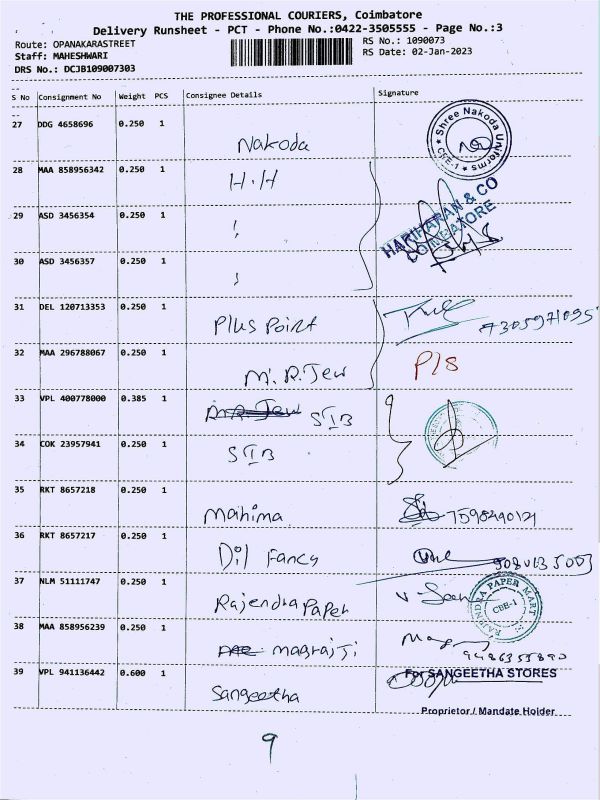 THE PROFESSIONAL COURIERS, Coimbatore
Delivery Runsheet - PCT - Phone No.:0422-3505555 - Page No.:3
Route: OPANAKARASTREET
RS No.: 1090073
Staff: MAHESHWARI
RS Date: 02-Jan-2023
DRS No.: DCJB109007303
S No Consignment No Weight PCS Consignee Details Signature
27 DDG 4658696 0.250 1 Nakoda
Shree Nakoda Uniforms
CBE-1
28 MAA 858956342 0.250 1 H.H
29 ASD 3456354 0.250 1
HARIHARAN & CO
COIMBATORE
30 ASD 3456357 0.250 1
31 DEL 120713353 0.250 1 Plus Point
32 MAA 296788067 0.250 1 M.R.Jew P/S
33 VPL 400778000 0.385 1 M.R.Jew SIB
34 COK 23957941 0.250 1 SIB
35 RKT 8657218 0.250 1 Mahima
36 RKT 8657217 0.250 1 Dil Fancy
37 NLM 51111747 0.250 1 Rajendra Paper
RAJENDRA PAPER MART
CBE-1
38 MAA 858956239 0.250 1 magrajji
39 VPL 941136442 0.600 1 Sangeetha
For SANGEETHA STORES
Proprietor / Mandate Holder
9